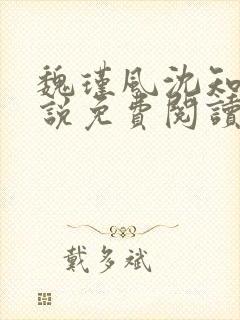 魏瑾風沈知
說免費閱讀
戴多斌